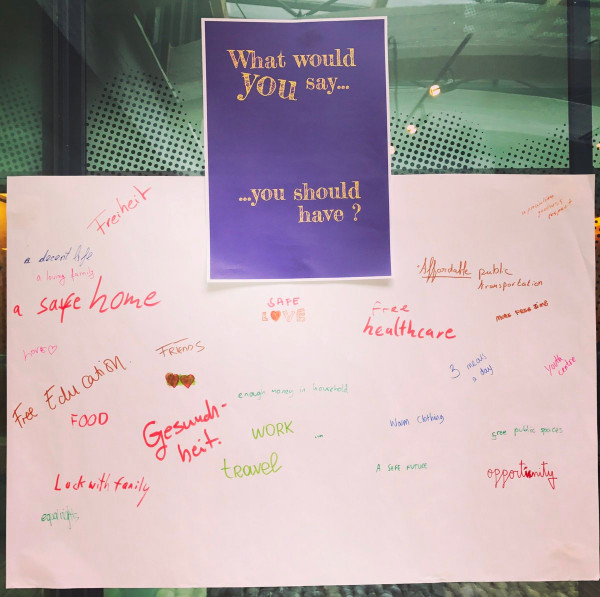 What would
you say...
...you should
have ?
Freiheit
a decent life
a loving family
a safe home
SAFE
LOVE
Affordable public
transportation
Free
healthcare
MORE FREE TIME
LOVE
FRIENDS
Free EDUCATION.
3 meals
a day
Youth
centre
enough money in household
FOOD
Gesund-
heit.
WORK
Warm Clothing
some public spaces
travel
A SAFE FUTURE
opportunity
Luck with family